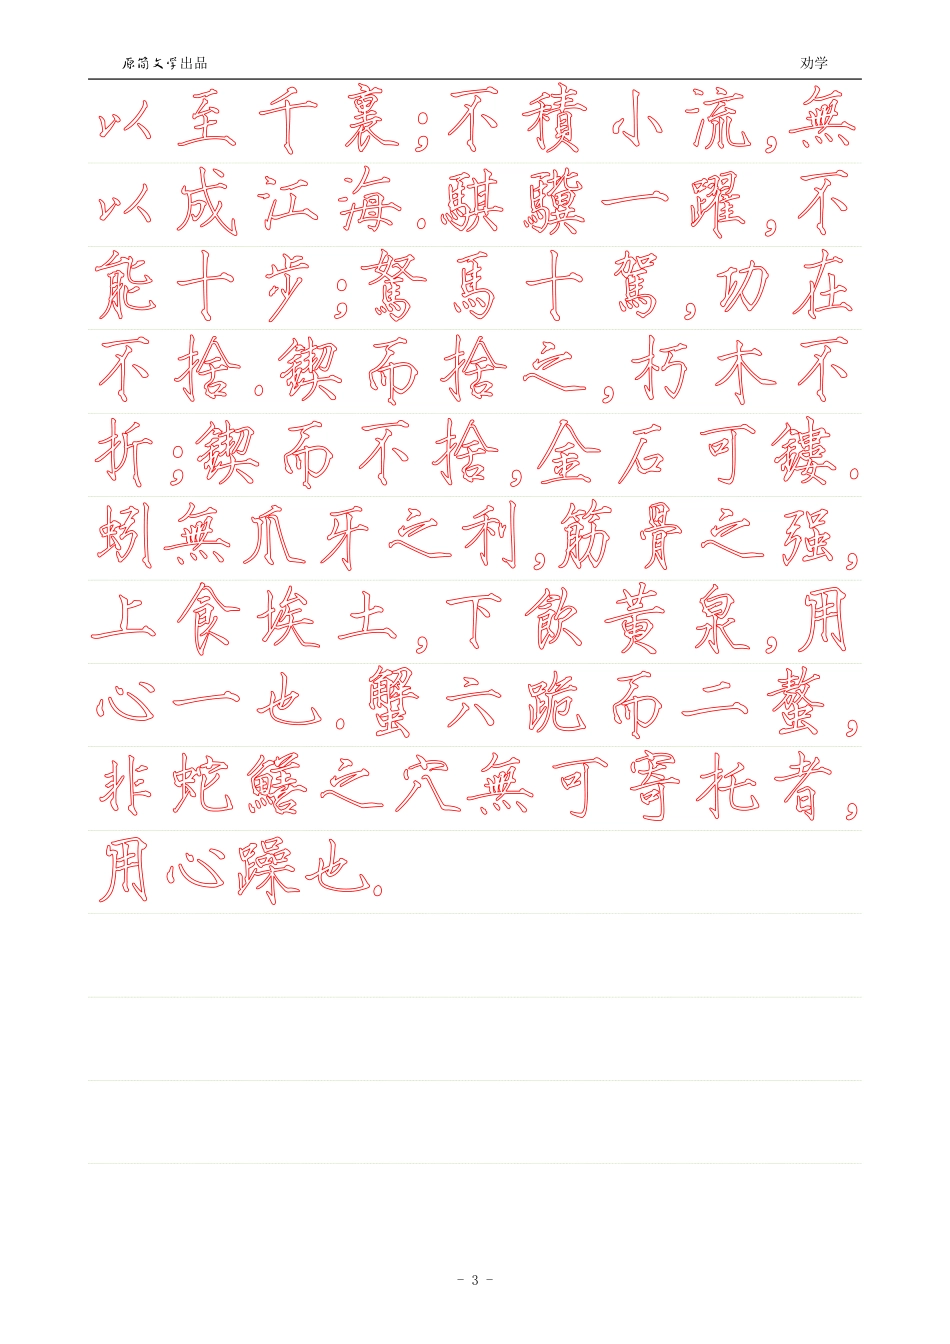 原简文学出品 劝学
以至千裏;不積小流,無
以成江海.騏驥一躍,不
能十步;駑馬十駕,功在
不捨.鍥而捨之,朽木不
折;鍥而不捨,金石可鏤.
蚓無爪牙之利,筋骨之强,
上食埃土,下飲黃泉,用
心一也.蟹六跪而二螯,
非蛇鱔之穴無可寄托者,
用心躁也.
- 3 -